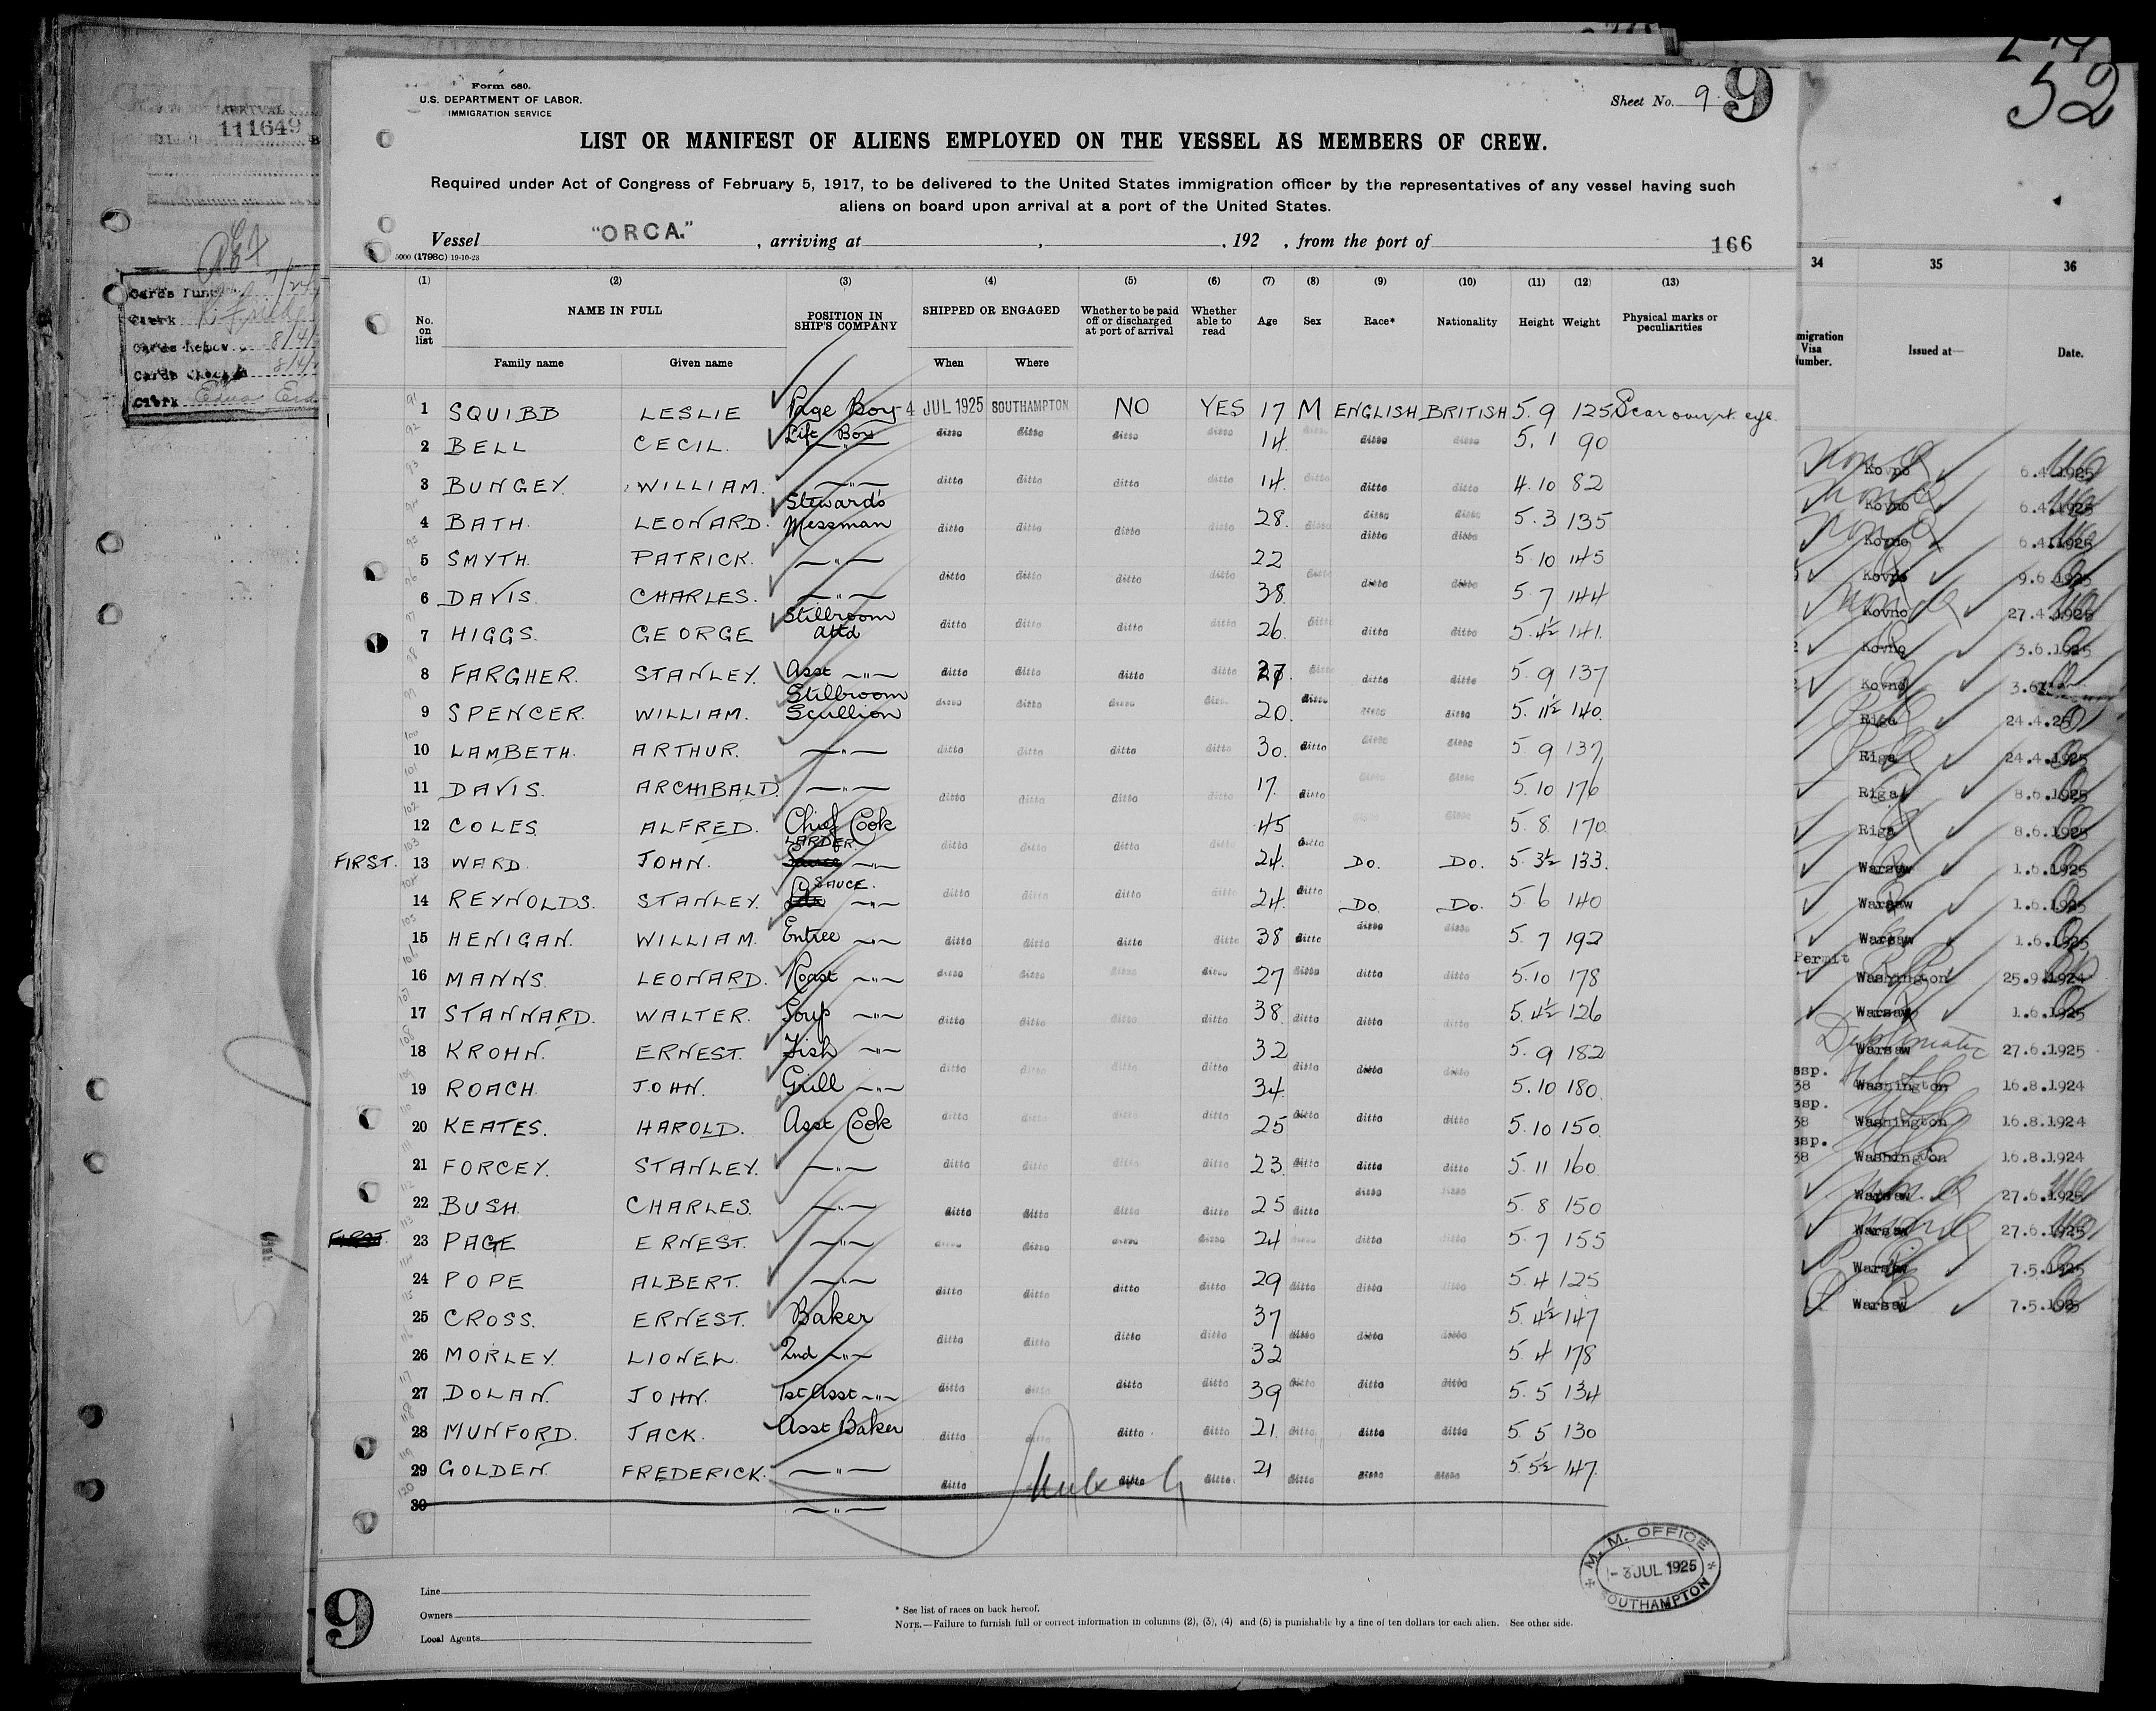 Form 680.
U.S. DEPARTMENT OF LABOR.
IMMIGRATION SERVICE
Sheet No. 9. 9
52
111649
LIST OR MANIFEST OF ALIENS EMPLOYED ON THE VESSEL AS MEMBERS OF CREW.
Required under Act of Congress of February 5, 1917, to be delivered to the United States immigration officer by the representatives of any vessel having such
aliens on board upon arrival at a port of the United States.
Vessel "ORCA." , arriving at , , 192 , from the port of 166
5000 (1798c) 19-10-23
(1) (2) (3) (4) (5) (6) (7) (8) (9) (10) (11) (12) (13)
No. on list NAME IN FULL POSITION IN SHIP'S COMPANY SHIPPED OR ENGAGED Whether to be paid off or discharged at port of arrival Whether able to read Age Sex Race* Nationality Height Weight Physical marks or peculiarities
Family name Given name When Where
1 SQUIBB LESLIE Page Boy 4 JUL 1925 SOUTHAMPTON NO YES 17 M ENGLISH BRITISH 5.9 125 Scar over rt eye.
2 BELL CECIL. Lift Boy ditto ditto ditto ditto 14. ditto ditto ditto 5.1 90
3 BUNGEY. WILLIAM. —"— ditto ditto ditto ditto 14. ditto ditto ditto 4.10 82
4 BATH. LEONARD. Steward's Messman ditto ditto ditto ditto 28. ditto ditto ditto 5.3 135
5 SMYTH. PATRICK. —"— 22 ditto ditto 5.10 145
6 DAVIS. CHARLES. —"— ditto ditto ditto ditto 38. ditto ditto ditto 5.7 144
7 HIGGS. GEORGE Stillroom attd ditto ditto ditto ditto 26. ditto ditto ditto 5.4½ 141.
8 FARGHER. STANLEY. Asst —"— ditto ditto ditto ditto 27. ditto ditto ditto 5.9 137
9 SPENCER. WILLIAM. Stillroom Scullion ditto ditto ditto ditto 20. ditto ditto ditto 5.11½ 140.
10 LAMBETH. ARTHUR. —"— ditto ditto ditto ditto 30. ditto ditto ditto 5.9 137
11 DAVIS. ARCHIBALD. —"— ditto ditto ditto ditto 17. ditto ditto ditto 5.10 176
12 COLES ALFRED. Chief Cook ditto ditto ditto ditto 45 ditto ditto 5.8 170
FIRST. 13 WARD. JOHN. LARDER —"— 24. ditto Do. Do. 5.3½ 133.
14 REYNOLDS. STANLEY. SAUCE. —"— ditto ditto ditto ditto 24. ditto Do. Do. 5.6 140
15 HENIGAN. WILLIAM. Entree —"— ditto ditto ditto ditto 38 ditto ditto ditto 5.7 192
16 MANNS. LEONARD. Roast —"— ditto ditto ditto ditto 27 ditto ditto ditto 5.10 178
17 STANNARD. WALTER. Soup —"— ditto ditto ditto ditto 38. ditto ditto ditto 5.4½ 126
18 KROHN. ERNEST. Fish —"— 32 5.9 182
19 ROACH. JOHN. Grill —"— ditto ditto ditto ditto 34. ditto ditto ditto 5.10 180.
20 KEATES. HAROLD. Asst Cook ditto ditto ditto ditto 25 ditto ditto ditto 5.10 150.
21 FORCEY. STANLEY. —"— ditto ditto ditto ditto 23. ditto ditto ditto 5.11 160
22 BUSH. CHARLES. —"— ditto ditto ditto ditto 25 ditto ditto ditto 5.8 150
FIRST. 23 PAGE ERNEST. —"— ditto ditto ditto ditto 24 ditto ditto ditto 5.7 155
24 POPE ALBERT. —"— ditto ditto ditto ditto 29 ditto ditto ditto 5.4 125
25 CROSS. ERNEST. Baker 37 5.4½ 147
26 MORLEY. LIONEL. 2nd —"— ditto ditto ditto ditto 32 ditto ditto ditto 5.4 178
27 DOLAN. JOHN. 1st Asst —"— ditto ditto ditto ditto 39 ditto ditto ditto 5.5 134
28 MUNFORD. JACK. Asst Baker ditto ditto ditto ditto 21. ditto ditto ditto 5.5 130
29 GOLDEN. FREDERICK. —"— ditto ditto ditto 21 ditto ditto ditto 5.5½ 147.
30 —"—
M. M. OFFICE
-3 JUL 1925
SOUTHAMPTON
9
Line
Owners
Local Agents
* See list of races on back hereof.
NOTE.—Failure to furnish full or correct information in columns (2), (3), (4) and (5) is punishable by a fine of ten dollars for each alien. See other side.
34 35 36
migration Visa Number. Issued at— Date.
Kovno 6.4.1925
Kovno 6.4.1925
Kovno 6.4.1925
Kovno 9.6.1925
Kovno 27.4.1925
Kovno 3.6.1925
Kovno
Riga 24.4.25
Riga 24.4.1925
Riga 8.6.1925
Riga 8.6.1925
Warsaw 1.6.1925
Warsaw 1.6.1925
Warsaw 1.6.1925
Permit
Washington 25.9.1924
Warsaw 1.6.1925
Diplomatic
Warsaw 27.6.1925
ssp.
38 Washington 16.8.1924
ssp.
38 Washington 16.8.1924
ssp.
38 Washington 16.8.1924
Warsaw 27.6.1925
Warsaw 27.6.1925
Warsaw 7.5.1925
Warsaw 7.5.1925